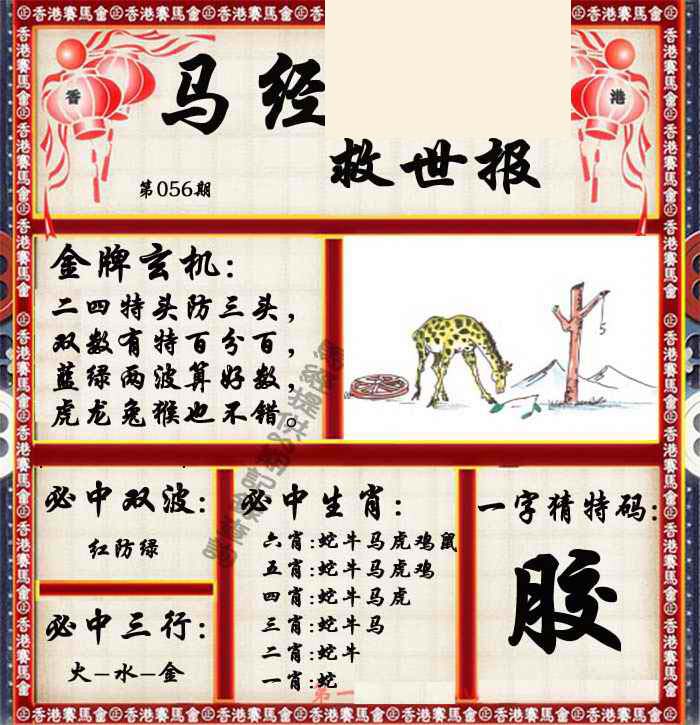 香港賽馬會
香
港
马经
救世报
第056期
金牌玄机:
二四特头防三头，
双数有特百分百，
蓝绿两波算好数，
虎龙兔猴也不错。
5
必中双波:
红防绿
必中三行:
火-水-金
必中生肖:
六肖:蛇牛马虎鸡鼠
五肖:蛇牛马虎鸡
四肖:蛇牛马虎
三肖:蛇牛马
二肖:蛇牛
一肖:蛇
第一
一字猜特码:
胶